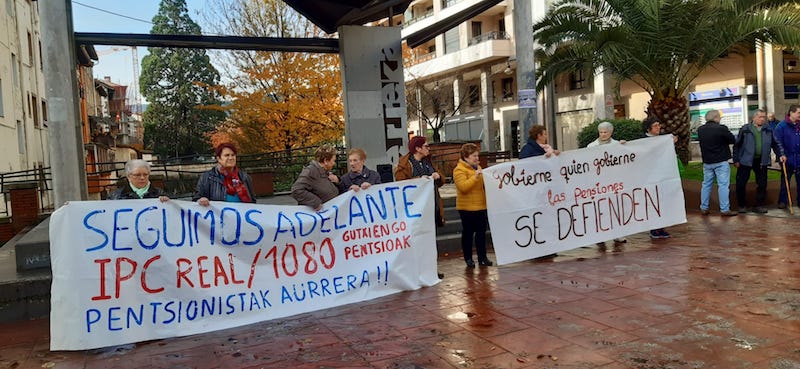 SEGUIMOS ADELANTE
IPC REAL/1080 GUTXIENGO
PENTSIOAK
PENTSIONISTAK AURRERA!!
Gobierne quien gobierne
las pensiones
SE DEFIENDEN